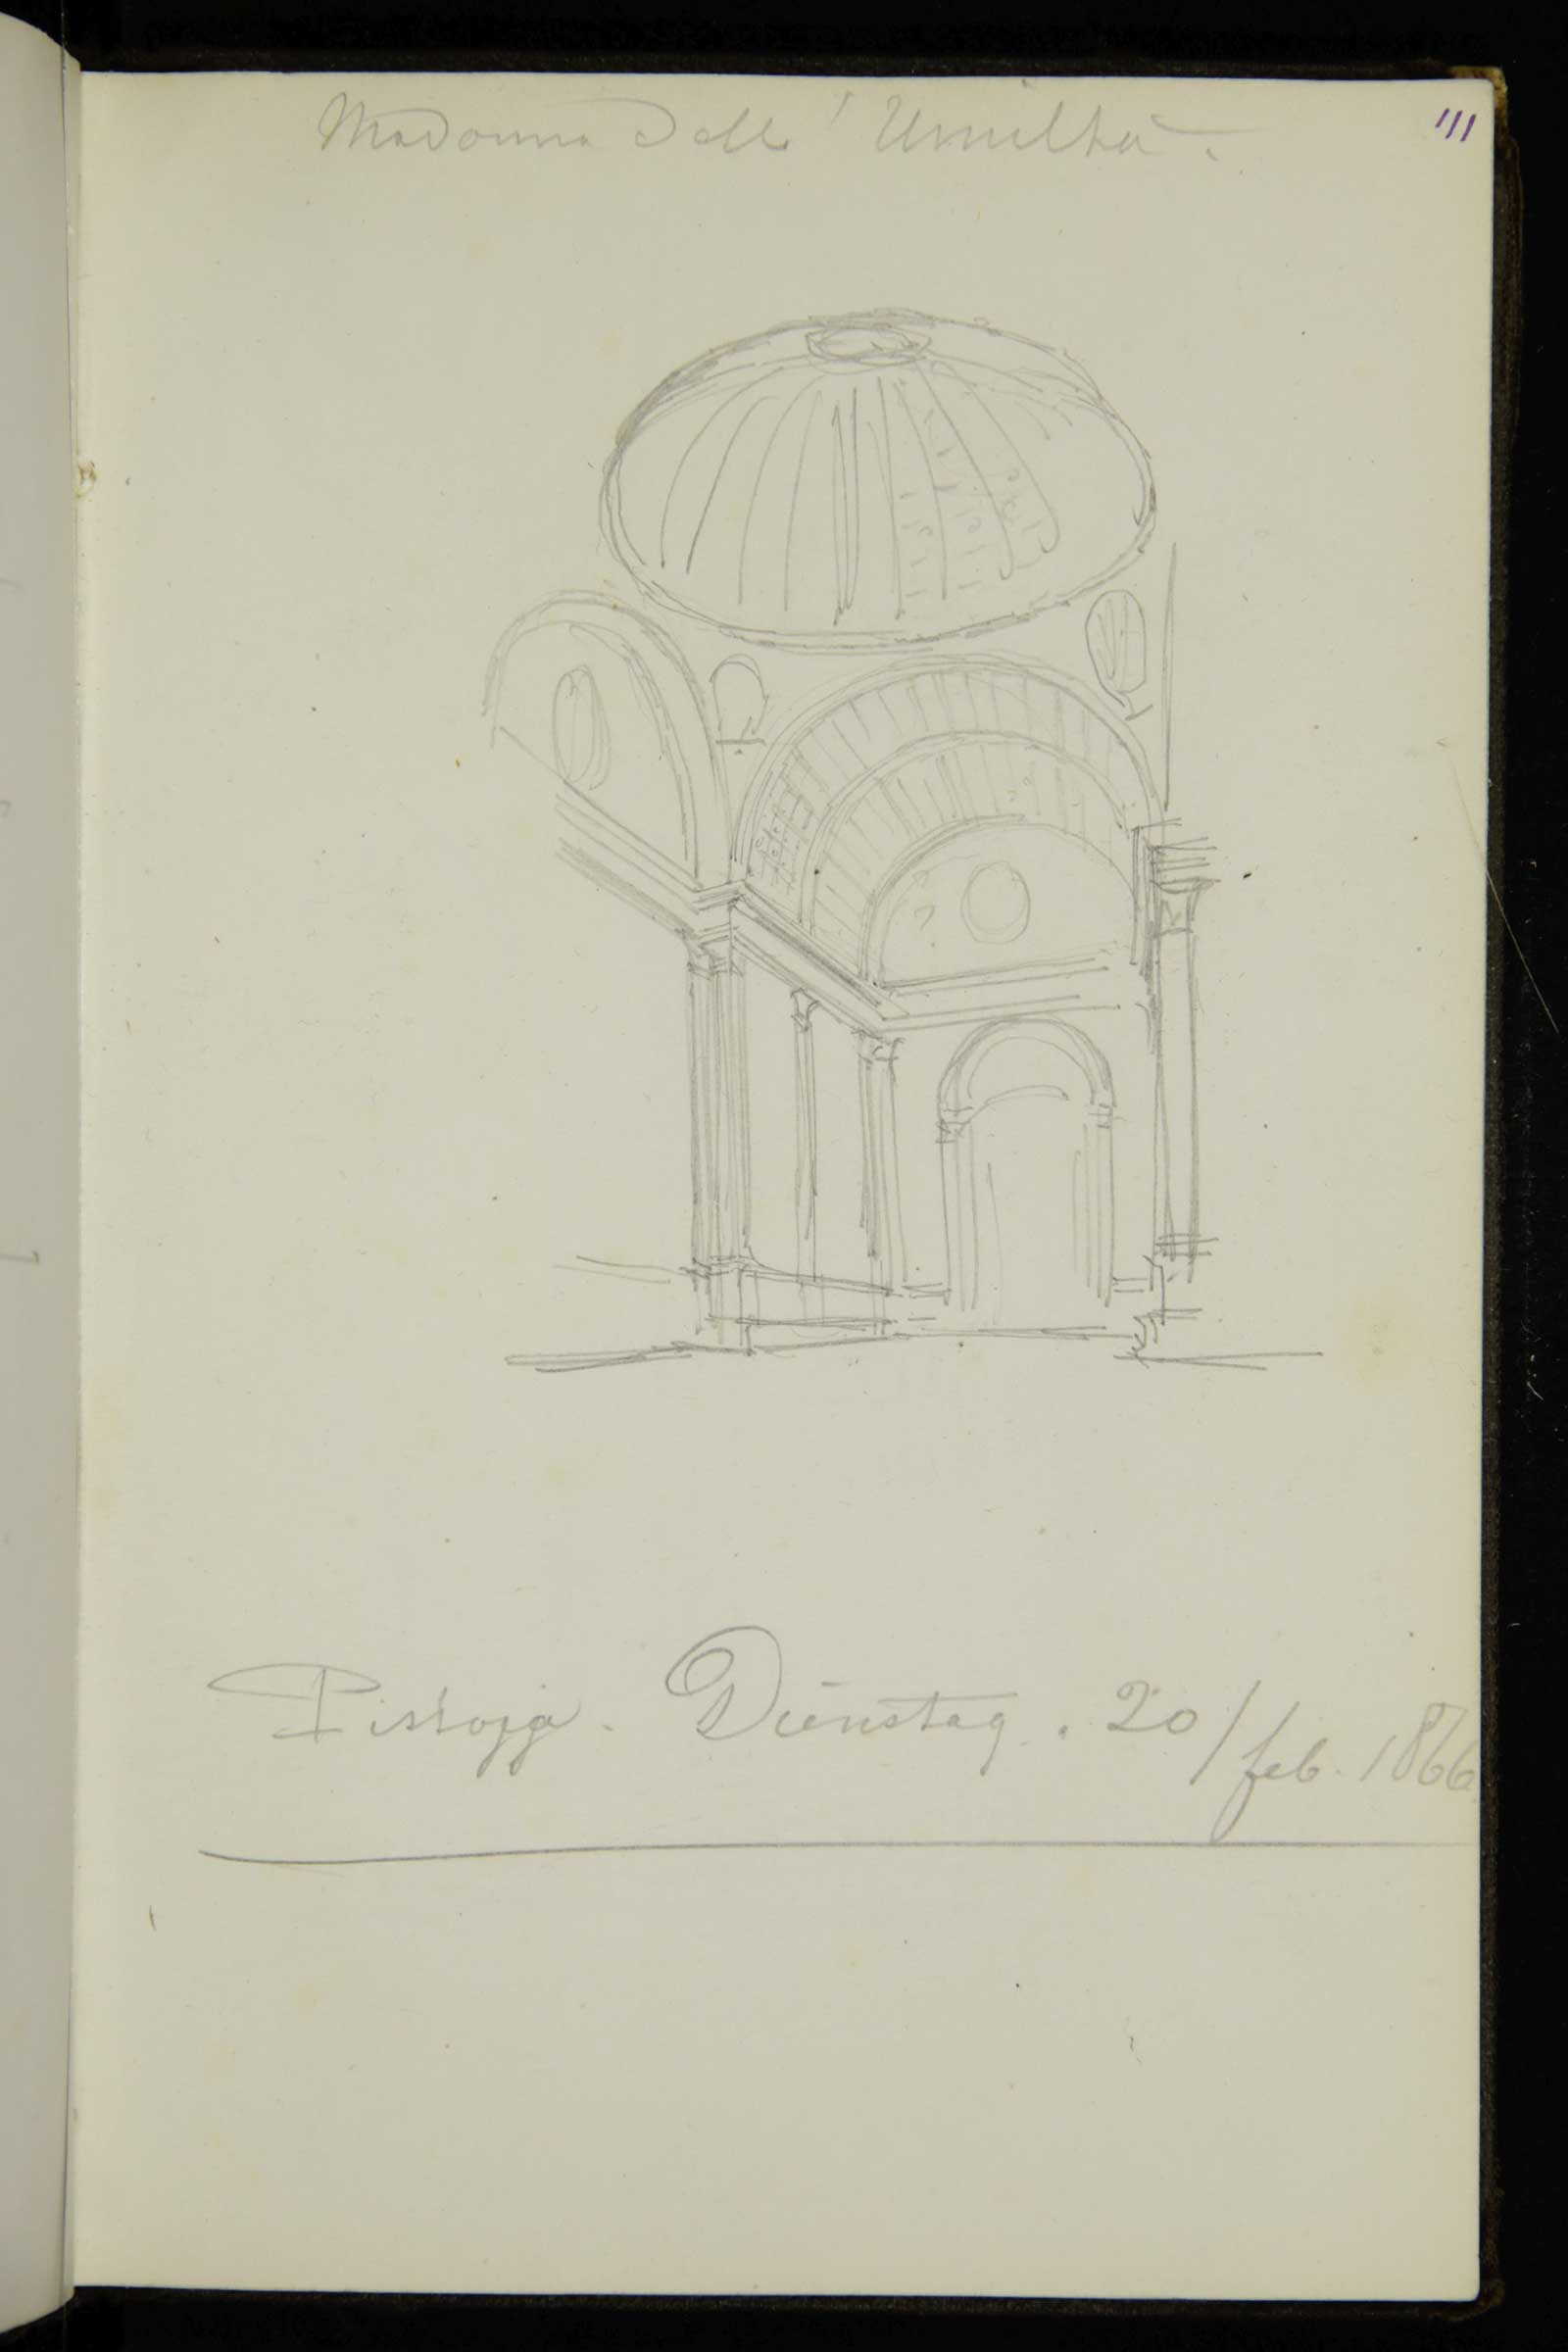 Madonna dell' Umilta.
111
Pistojja. Dienstag. 20/feb. 1866